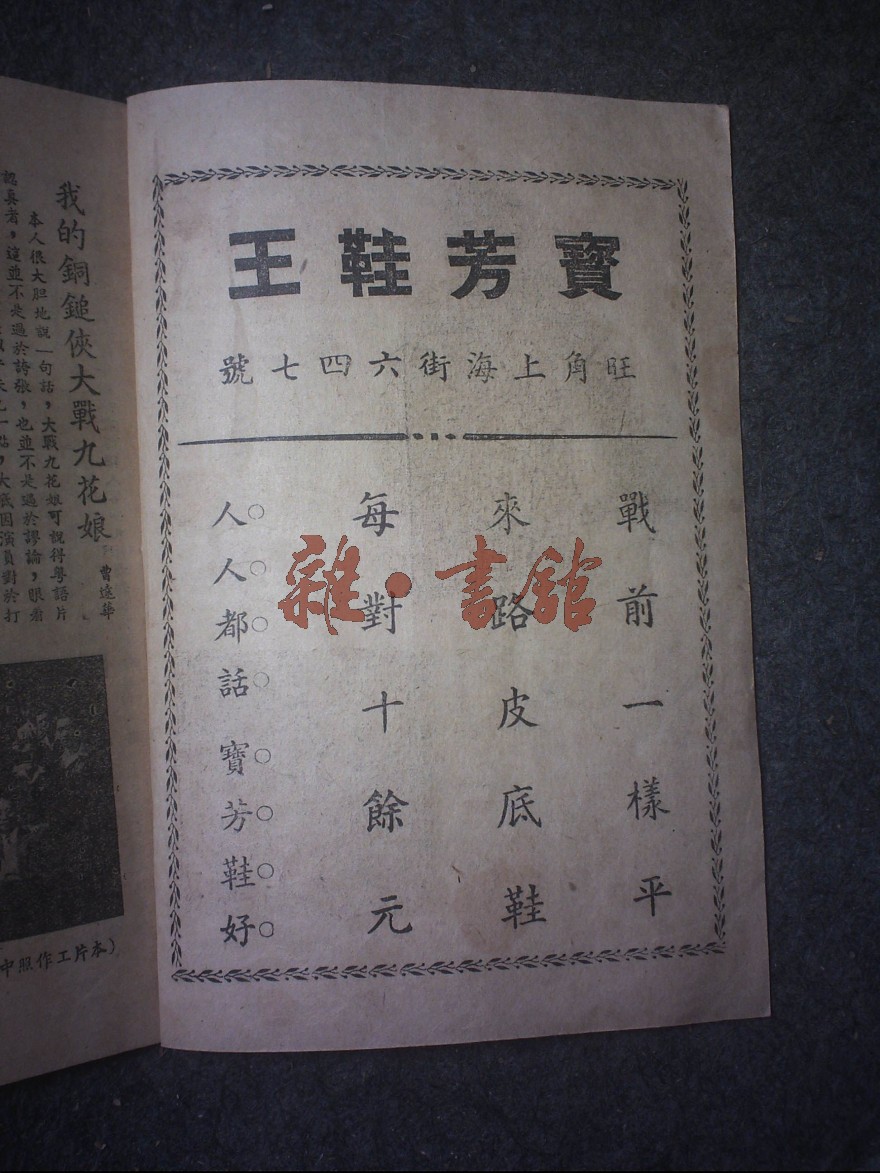 寶芳鞋王
旺角上海街六四七號
戰前一樣平
來路皮底鞋
每對十餘元
人人都話寶芳鞋好
雜·書館
我的銅鎚俠大戰九花娘
曹達華
本人很大胆地說一句話，大戰九花娘可說得粵語片
認真者，這並不是過於誇張，也並不是過於謬論，眼看
一點，大概因演員對於打
（本片工作照中